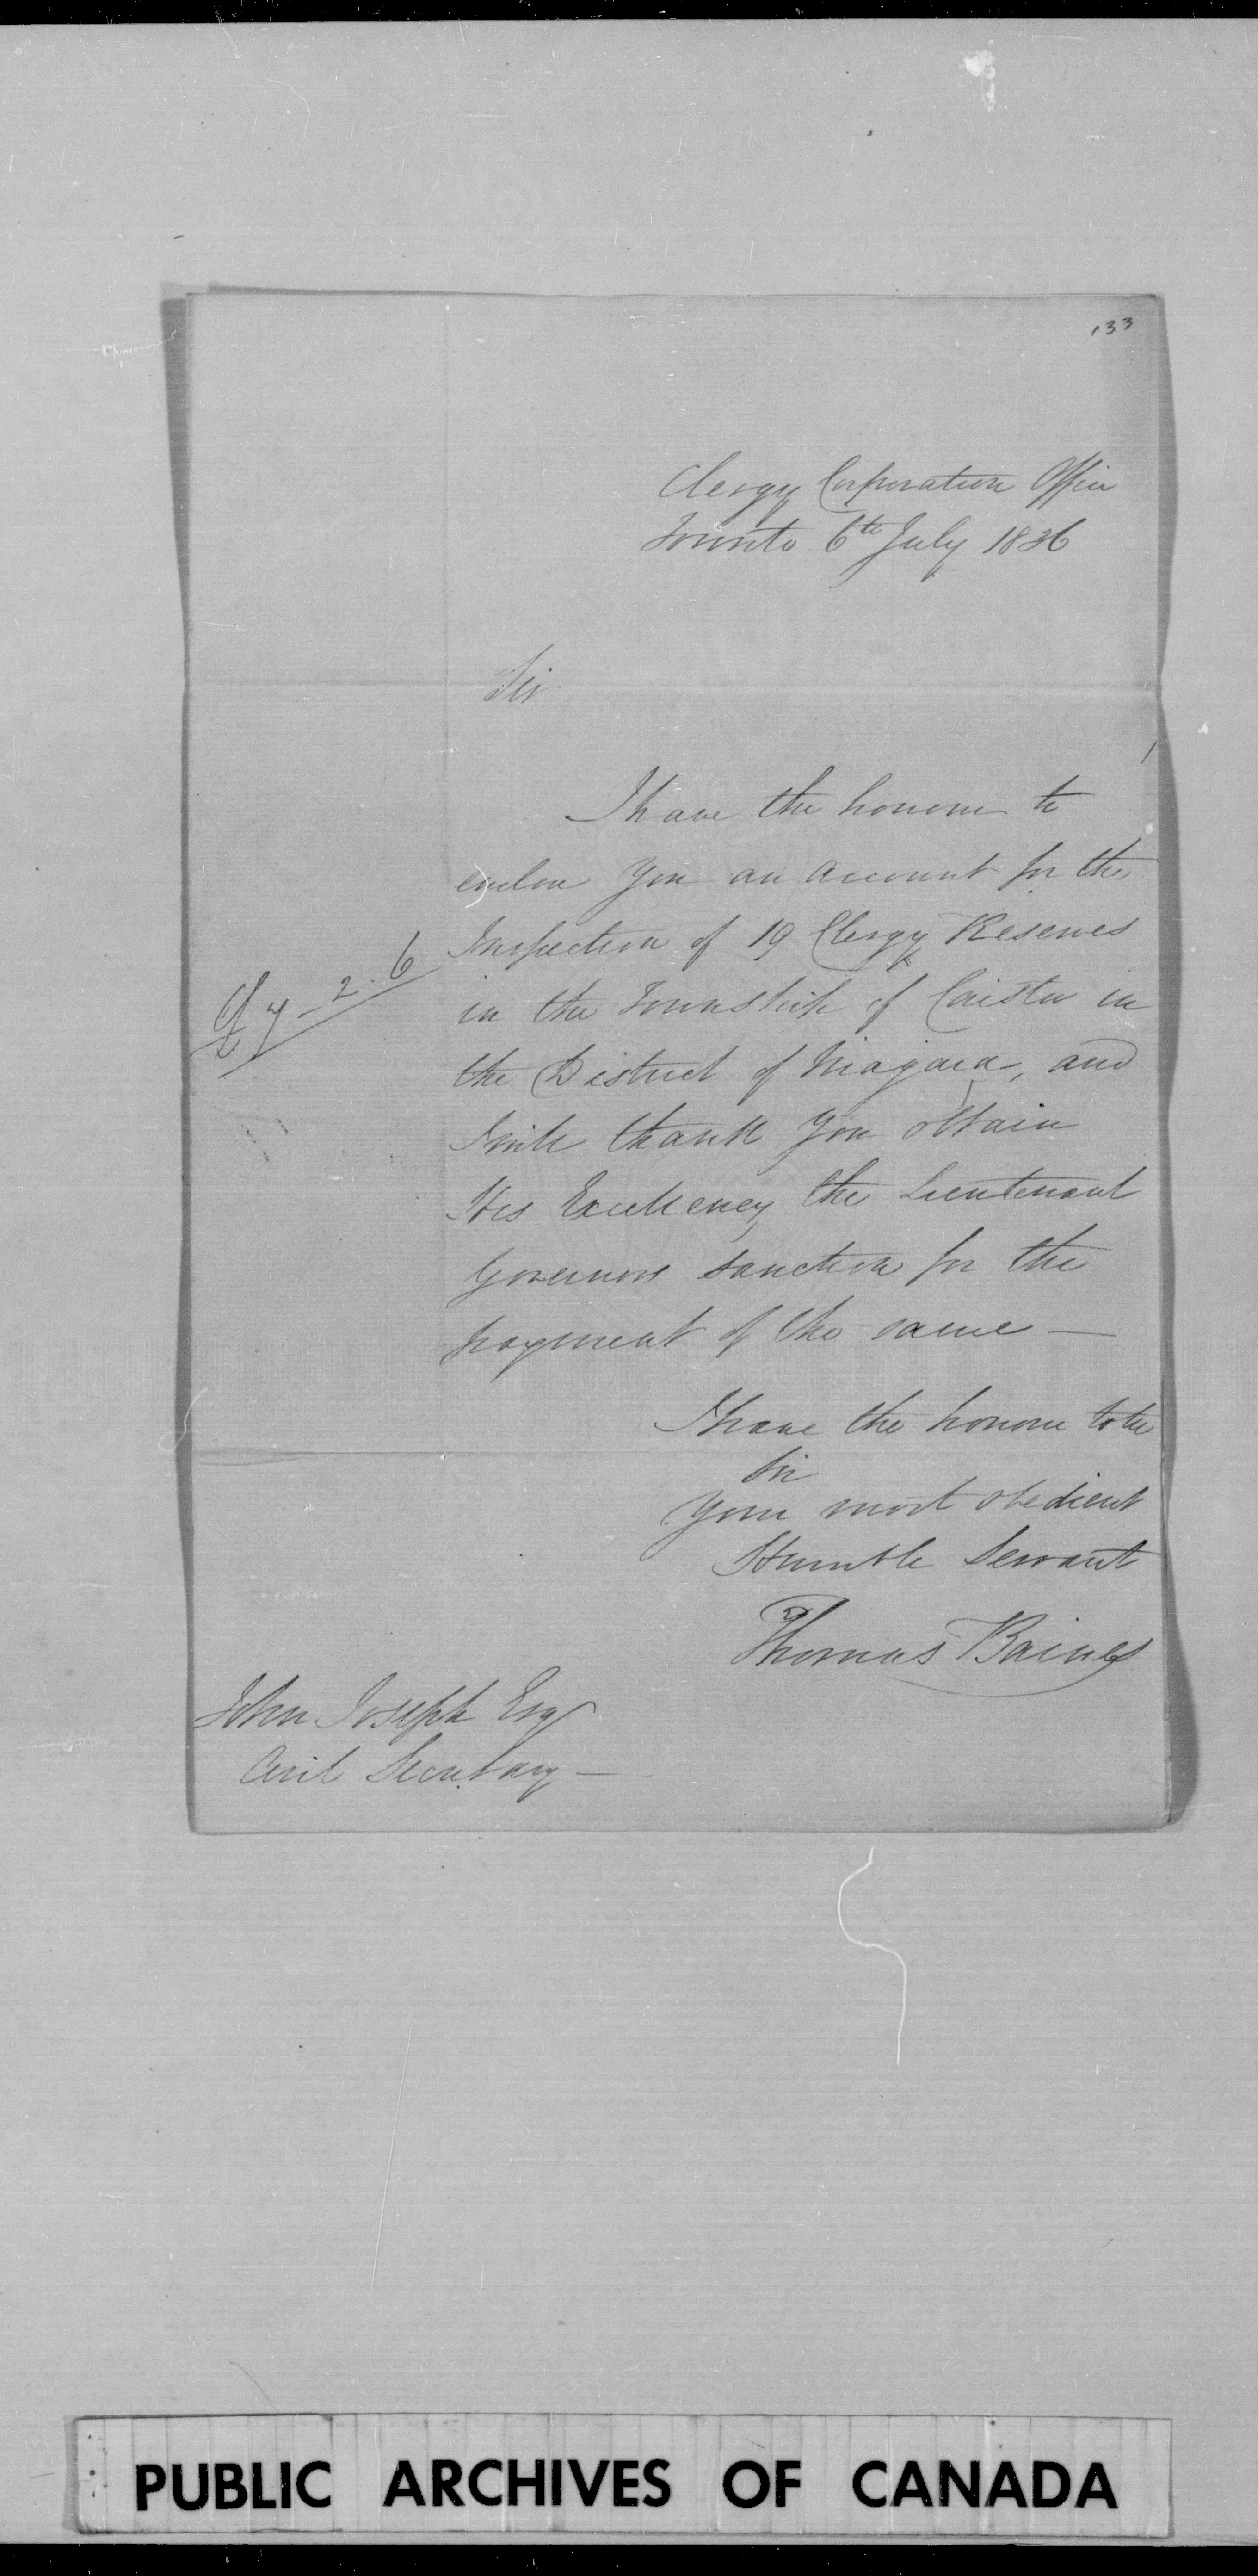 133
Clergy Corporation Office
Toronto 6th July 1836
Sir
I have the honour to
enclose you an account for the
Inspection of 19 Clergy Reserves
£7-2.6
in the Township of Caistor in
the District of Niagara, and
I will thank you obtain
His Excellency the Lieutenant
Governors sanction for the
payment of the same —
I have the honour to be
Sir
Your most obedient
Humble Servant
Thomas Baines
John Joseph Esq
Civil Secretary —
PUBLIC ARCHIVES OF CANADA